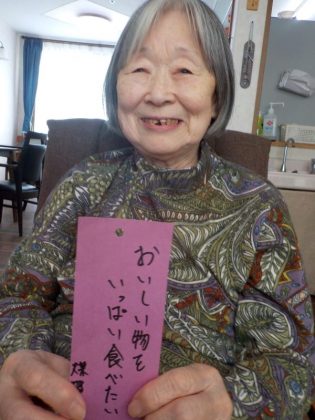 おいしい物を
いっぱい食べたい